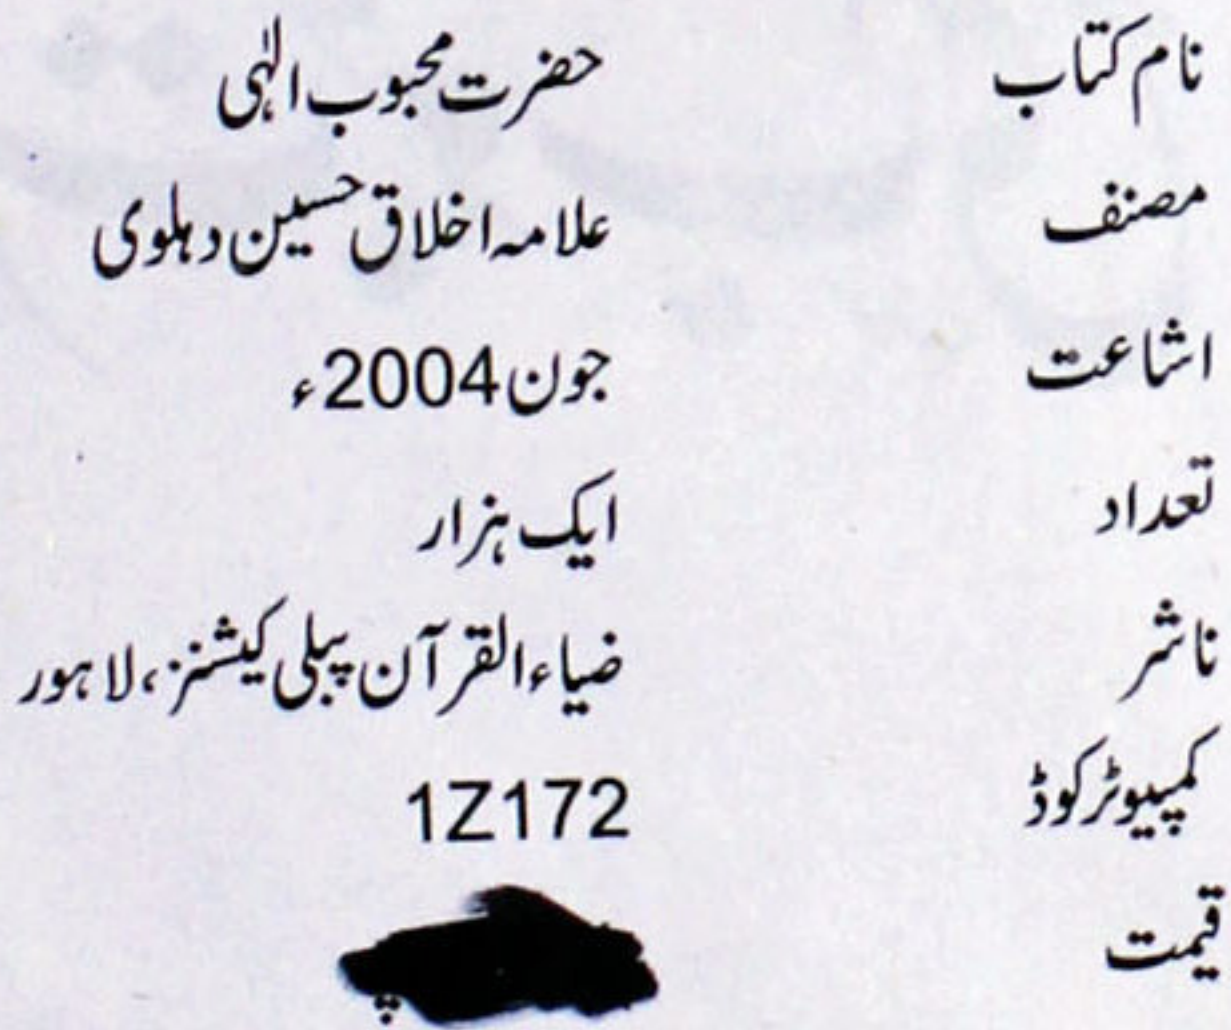 نام کتاب حضرت محبوب الٰہی
مصنف علامہ اخلاق حسین دہلوی
اشاعت جون 2004ء
تعداد ایک ہزار
ناشر ضیاء القرآن پبلی کیشنز، لاہور
کمپیوٹر کوڈ 1Z172
قیمت